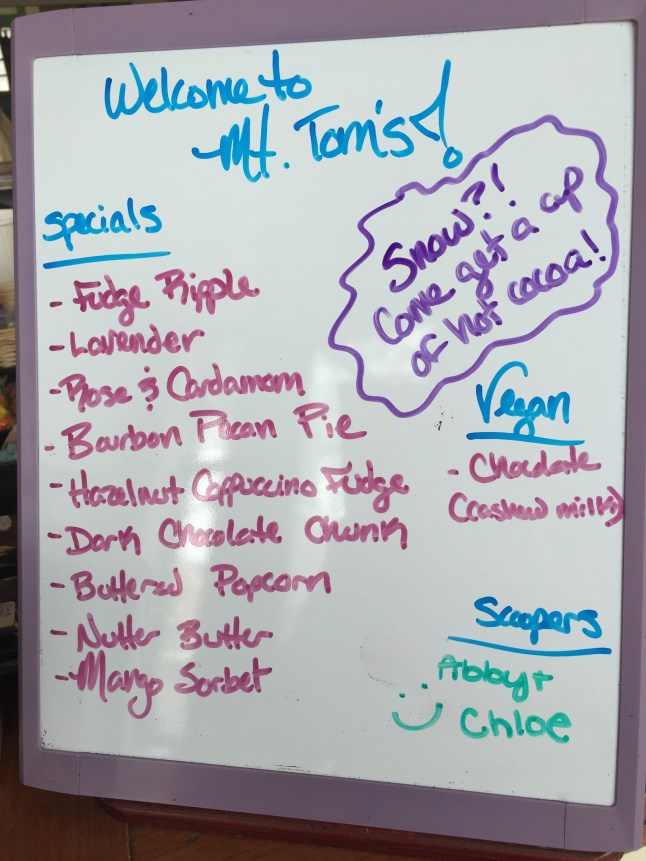 Welcome to
Mt. Tom's!
Specials
- Fudge Ripple
- Lavender
- Rose & Cardamom
- Bourbon Pecan Pie
- Hazelnut Cappuccino Fudge
- Dark Chocolate Chunk
- Buttered Popcorn
- Nutter Butter
- Mango Sorbet
Snow?!
Come get a cup
of hot cocoa!
Vegan
- Chocolate
(cashew milk)
Scoopers
Abby +
Chloe